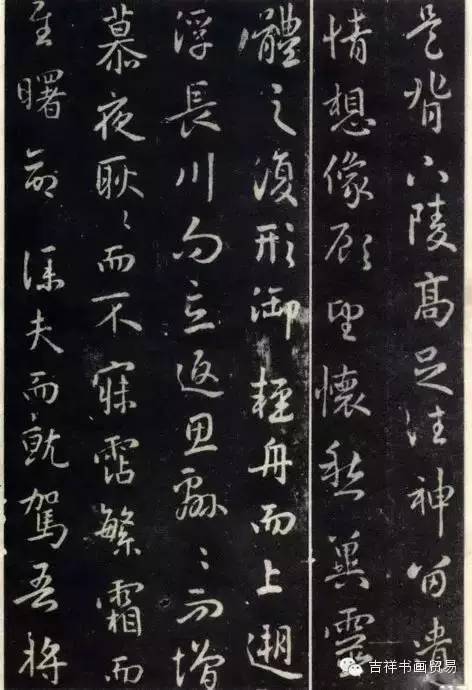 是背下陵高足往神留遺
情想像顧望懷愁冀靈
體之復形御輕舟而上遡
浮長川而忘返思綿〻而增
慕夜耿〻而不寐霑繁霜而
至曙命僕夫而就駕吾將
吉祥书画贸易